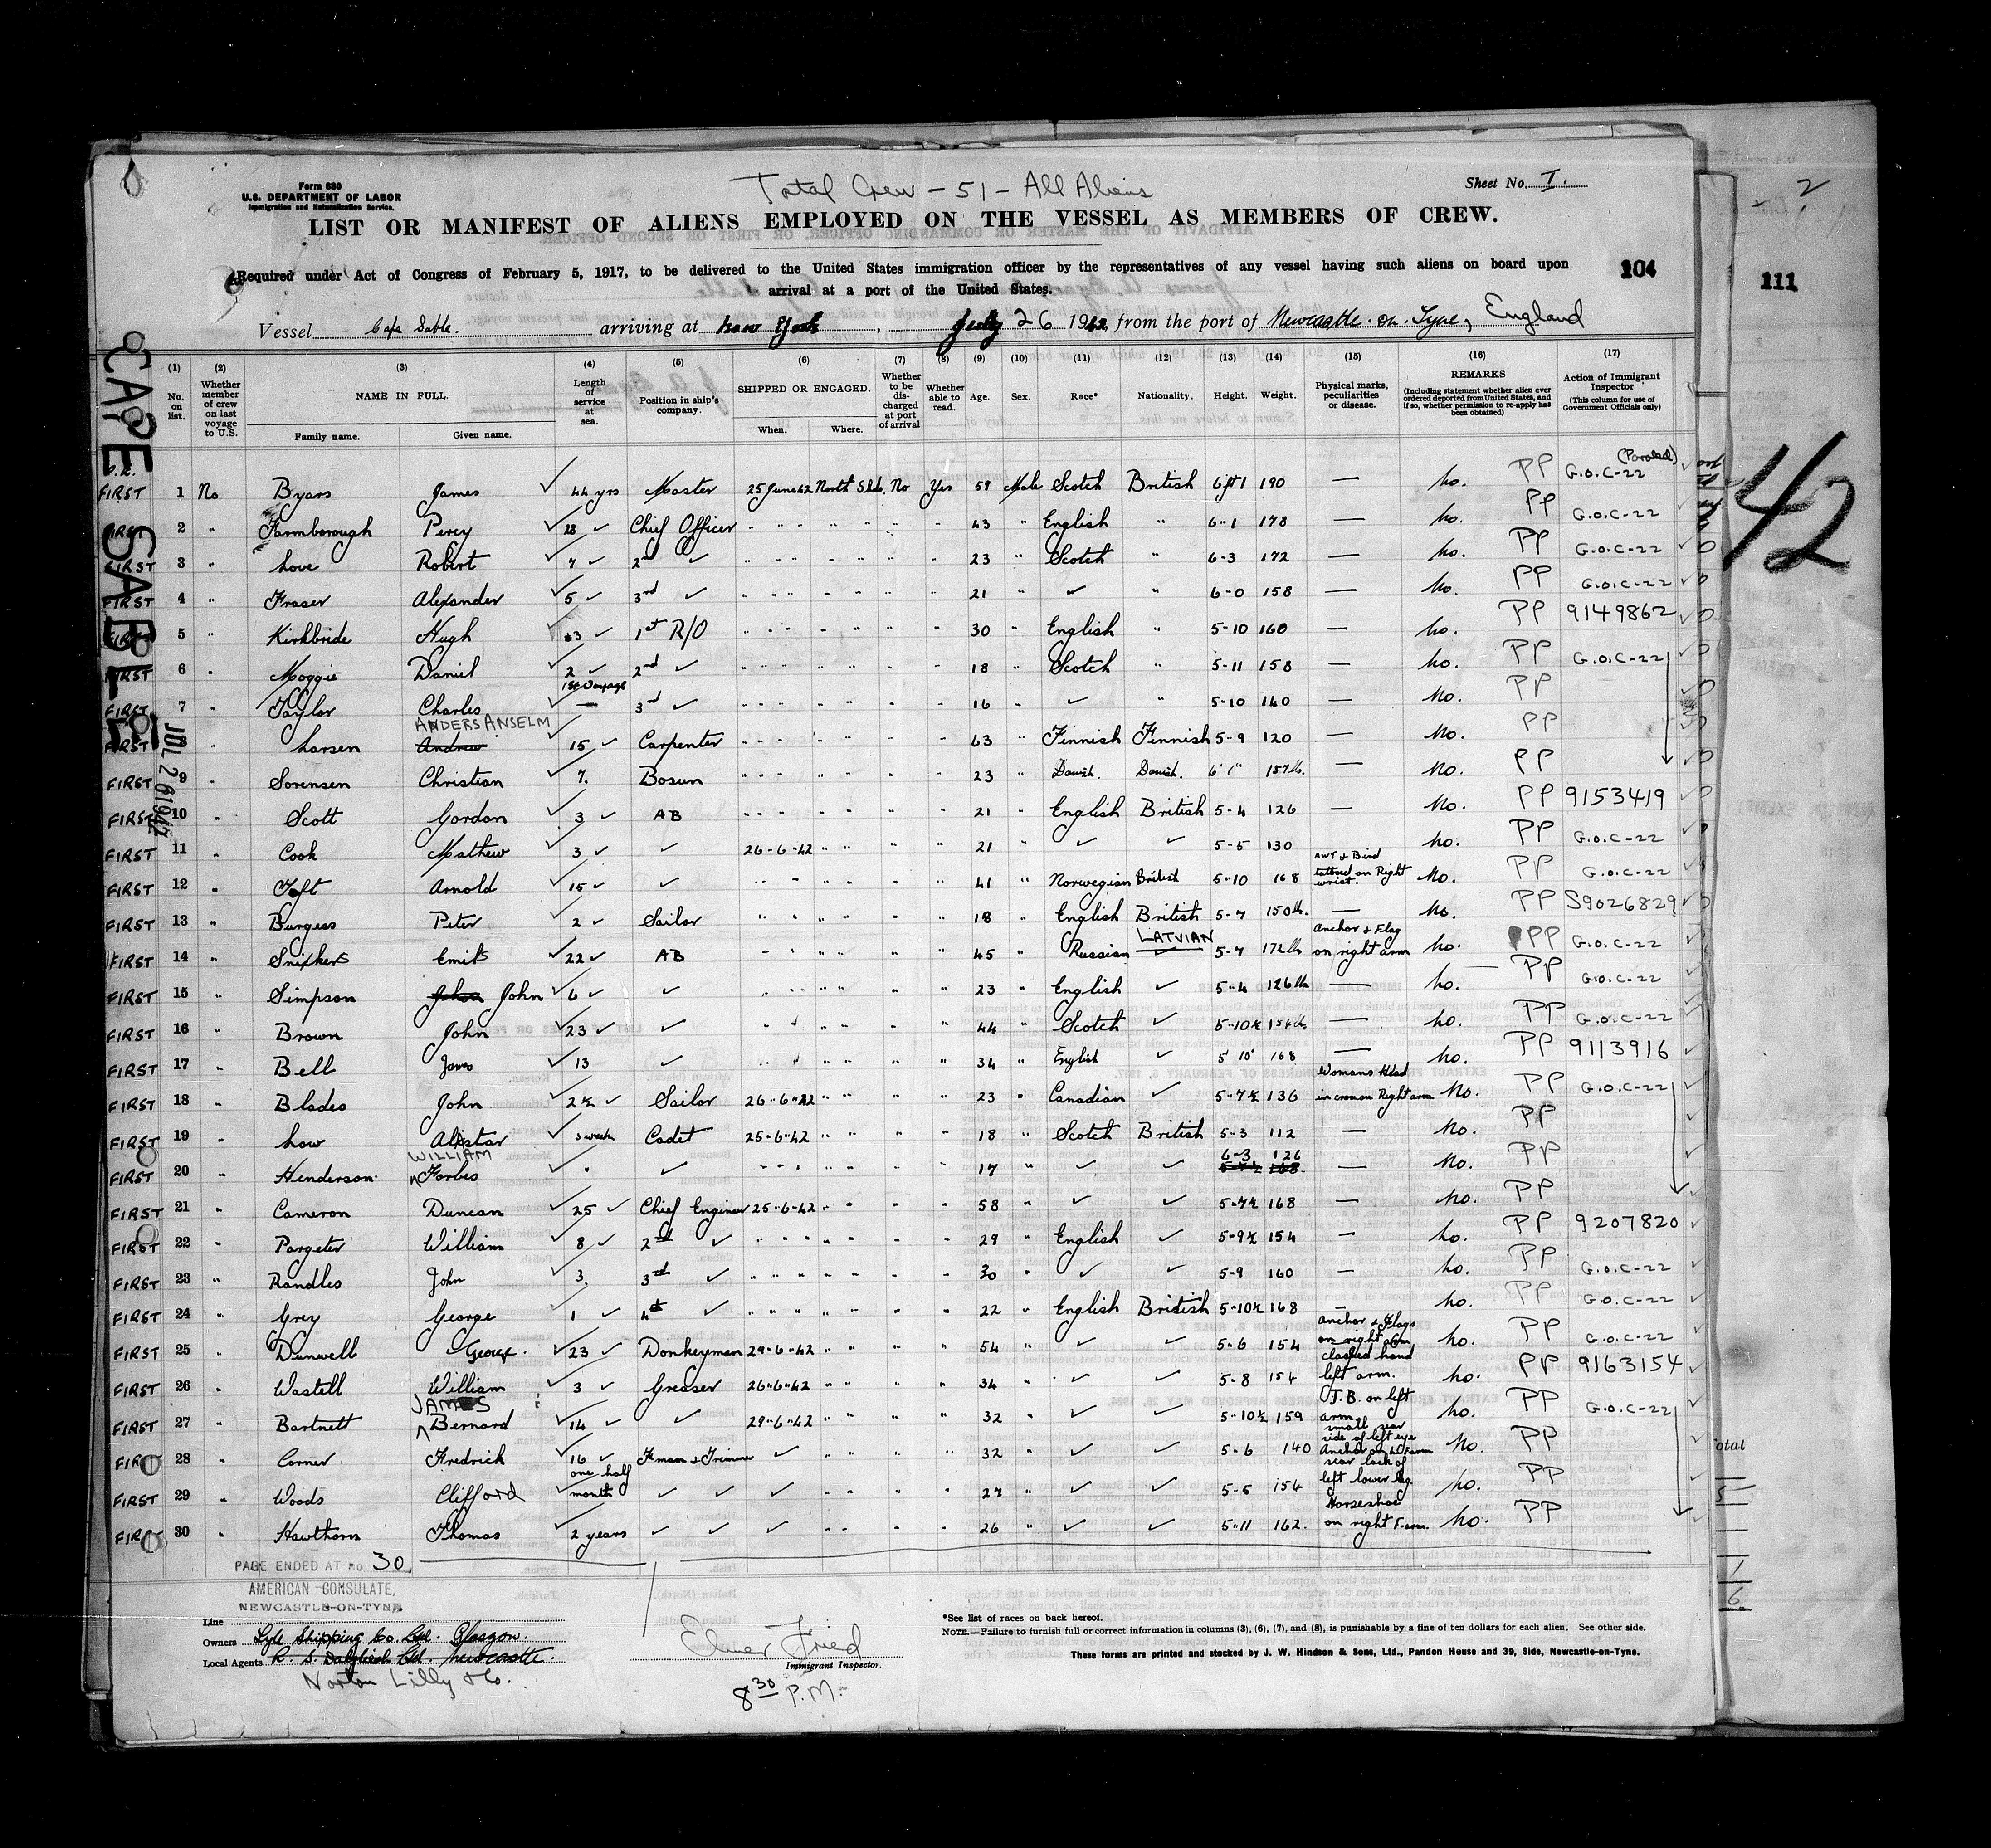 Form 680
U.S. DEPARTMENT OF LABOR
Immigration and Naturalization Service.
Total Crew - 51 - All Aliens
Sheet No. I.
LIST OR MANIFEST OF ALIENS EMPLOYED ON THE VESSEL AS MEMBERS OF CREW.
Required under Act of Congress of February 5, 1917, to be delivered to the United States immigration officer by the representatives of any vessel having such aliens on board upon
arrival at a port of the United States.
104
111
42
Vessel Cape Sable. arriving at New York, July 26 1942 from the port of Newcastle-on-Tyne, England
CAPE SABLE
JUL 26 1942
(1) No. on list.
(2) Whether member of crew on last voyage to U.S.
(3) NAME IN FULL. Family name. Given name.
(4) Length of service at sea.
(5) Position in ship's company.
(6) SHIPPED OR ENGAGED. When. Where.
(7) Whether to be discharged at port of arrival
(8) Whether able to read.
(9) Age.
(10) Sex.
(11) Race*
(12) Nationality.
(13) Height.
(14) Weight.
(15) Physical marks, peculiarities or disease.
(16) REMARKS (Including statement whether alien ever ordered deported from United States, and if so, whether permission to re-apply has been obtained)
(17) Action of Immigrant Inspector (This column for use of Government Officials only)
FIRST 1 No Byars James ✓ 44 yrs Master 25 June 42 North Slds. No Yes 59 Male Scotch British 6 ft 1 190 — No. PP G.O.C-22 (Paroled)
FIRST 2 " Farmborough Percy ✓ 28 ✓ Chief Officer " " " " " " 43 " English " 6-1 178 — No. PP G.O.C-22
FIRST 3 " Love Robert ✓ 7 ✓ 2nd ✓ " " " " " " 23 " Scotch " 6-3 172 — No. PP G.O.C-22
FIRST 4 " Fraser Alexander ✓ 5 ✓ 3rd ✓ " " " " " " 21 " ✓ " 6-0 158 — No. PP G.O.C-22
FIRST 5 " Kirkbride Hugh ✓ 3 ✓ 1st R/O " " " " " " 30 " English " 5-10 160 — No. PP 9149862
FIRST 6 " Moggie Daniel ✓ 2 ✓ 2nd ✓ " " " " " " 18 " Scotch " 5-11 158 — No. PP G.O.C-22
FIRST 7 " Taylor Charles ✓ 1st Voyage — 3rd ✓ " " " " " " 16 " ✓ " 5-10 140 — No. PP
FIRST 8 " Larsen Andrew ANDERS ANSELM ✓ 15 ✓ Carpenter " " " " " " 63 " Finnish Finnish 5-9 120 — No. PP
FIRST 9 " Sorensen Christian ✓ 7. Bosun " " " " " " 23 " Danish. Danish. 6'1" 157 lb. — No. PP
FIRST 10 " Scott Gordon ✓ 3 ✓ AB " " " " " " 21 " English British 5-4 126 — No. PP 9153419
FIRST 11 " Cook Mathew ✓ 3 ✓ ✓ 26-6-42 " " " " 21 " ✓ ✓ 5-5 130 No. PP G.O.C-22
FIRST 12 " Toft Arnold ✓ 15 ✓ ✓ " " " " " " 41 " Norwegian British 5-10 168 AWT & Bird tattoed on Right wrist. No. PP G.O.C-22
FIRST 13 " Burgess Peter ✓ 2 ✓ Sailor " " " " " " 18 " English British 5-7 150 lb. — No. PP S9026829
FIRST 14 " Snikers Emils ✓ 22 ✓ AB " " " " " " 45 " Russian LATVIAN 5-7 172 lb Anchor & Flag on right arm No. PP G.O.C-22
FIRST 15 " Simpson John ✓ 6 ✓ ✓ " " " " " " 23 " English ✓ 5-4 126 lb — No. PP G.O.C-22
FIRST 16 " Brown John ✓ 23 ✓ ✓ " " " " " " 44 " Scotch ✓ 5-10½ 154 lb — No. PP G.O.C-22
FIRST 17 " Bell James ✓ 13 ✓ " " " " " " 34 " English ✓ 5 10 168 — No. PP 9113916
FIRST 18 " Blades John ✓ 2½ ✓ Sailor 26-6-42 " " " " 23 " Canadian ✓ 5-7½ 136 Womans Head Right arm No. PP G.O.C-22
FIRST 19 " Law Alistar ✓ 3 weeks Cadet 25-6-42 " " " " 18 " Scotch British 5-3 112 — No. PP
FIRST 20 " Henderson WILLIAM Forbes ✓ " ✓ " " " " " " 17 " ✓ ✓ 6-3 126 — No. PP
FIRST 21 " Cameron Duncan ✓ 25 ✓ Chief Engineer 25-6-42 " " " " 58 " ✓ ✓ 5-7½ 168 — No. PP
FIRST 22 " Pargeter William ✓ 8 ✓ 2nd ✓ " " " " " " 29 " English ✓ 5-9½ 154 — No. PP 9207820
FIRST 23 " Randles John ✓ 3. 3rd ✓ " " " " " " 30 " ✓ ✓ 5-9 160 — No. PP G.O.C-22
FIRST 24 " Grey George ✓ 1 ✓ 4th ✓ " " " " " " 22 " English British 5-10½ 168 — No. PP G.O.C-22
FIRST 25 " Dunwell George. ✓ 23 ✓ Donkeyman 29-6-42 " " " " 54 " ✓ ✓ 5-6 154 Anchor & Flags on right arm No. PP G.O.C-22
FIRST 26 " Wastell William ✓ 3 ✓ Greaser 26-6-42 " " " " 34 " ✓ ✓ 5-8 154 clasped hand left arm. No. PP 9163154
FIRST 27 " Bartnett JAMES Bernard ✓ 14 ✓ ✓ 29-6-42 " " " " 32 " ✓ ✓ 5-10½ 159 J.B. on left arm No. PP G.O.C-22
FIRST 28 " Corner Fredrick ✓ 16 ✓ Fman & Trimmer ✓ " " " " 32 " ✓ ✓ 5-6 140 small scar side of left eye Anchor on No. PP
FIRST 29 " Woods Clifford ✓ one half month ✓ ✓ ✓ " " " " 27 " ✓ ✓ 5-5 154 scar back of left lower leg. No. PP
FIRST 30 " Hawthorn Thomas ✓ 2 years ✓ ✓ ✓ " " " " 26 " ✓ ✓ 5-11 162. Horseshoe on right F-arm. No. PP
PAGE ENDED AT No 30
AMERICAN CONSULATE,
NEWCASTLE-ON-TYNE
Line
Owners Lyle Shipping Co. Ltd. Glasgow.
Local Agents R. S. Dalgliesh Ltd. Newcastle.
Norton Lilly & Co.
Elmer Fried
Immigrant Inspector.
8 30 P.M.
*See list of races on back hereof.
NOTE.—Failure to furnish full or correct information in columns (3), (6), (7), and (8), is punishable by a fine of ten dollars for each alien. See other side.
These forms are printed and stocked by J. W. Hindson & Sons, Ltd., Pandon House and 39, Side, Newcastle-on-Tyne.